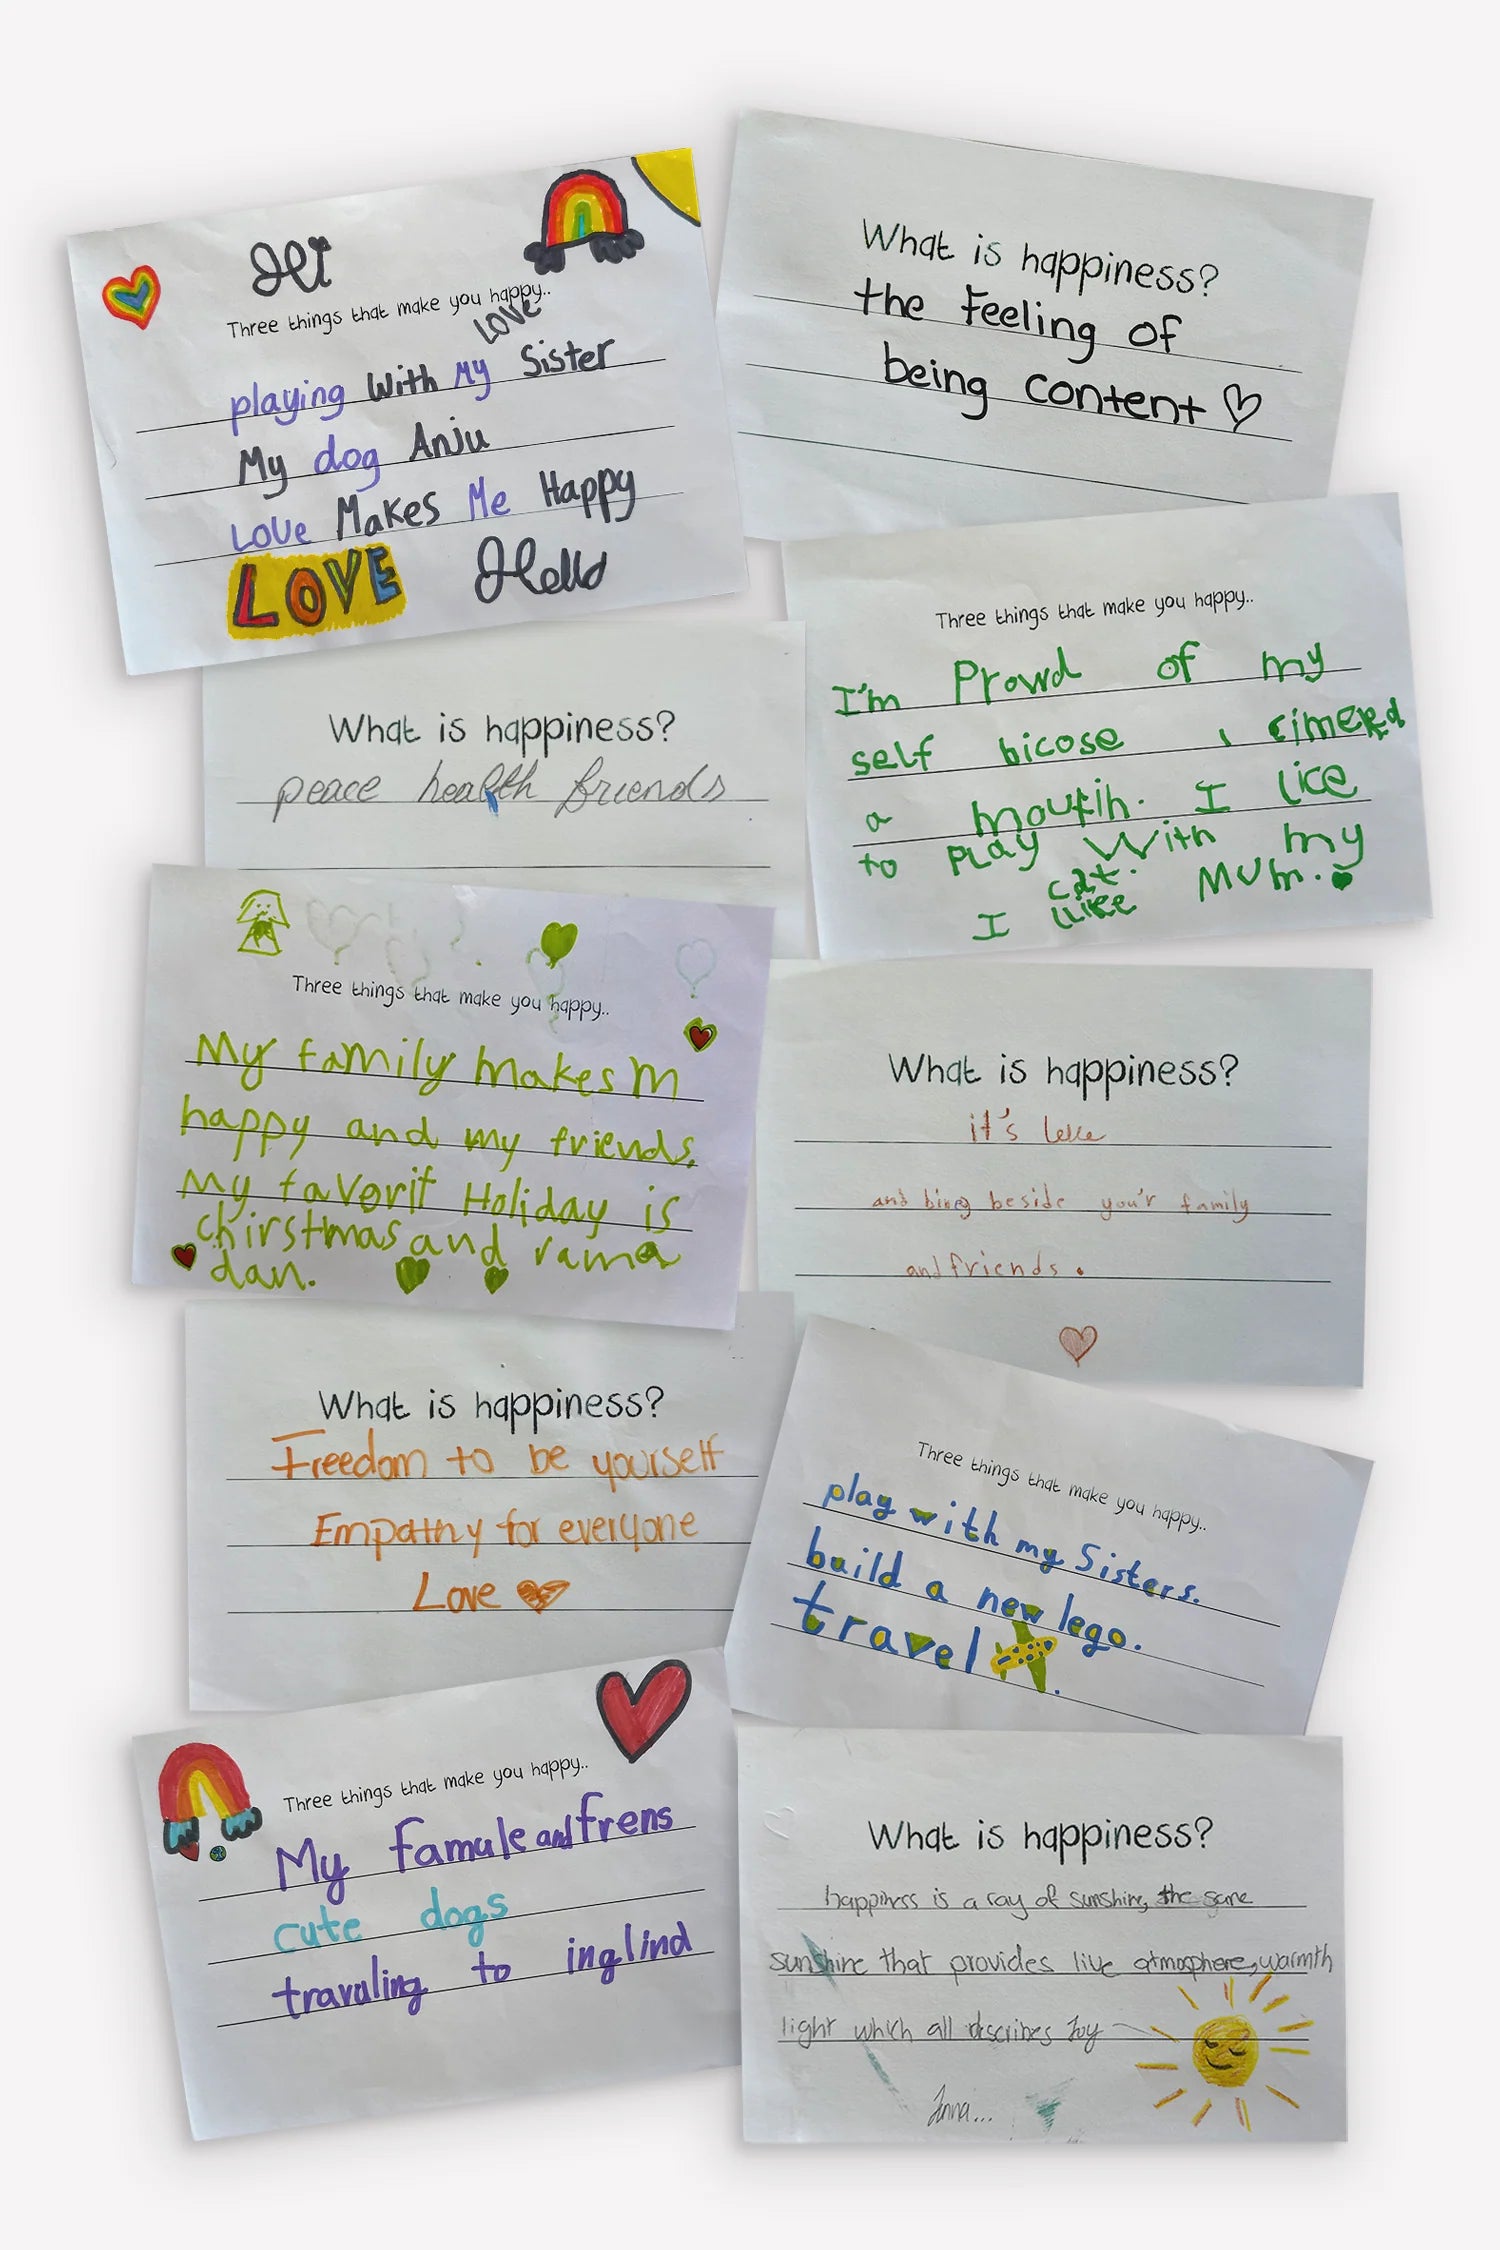 Hi
Three things that make you happy..
love
playing With My Sister
My dog Anju
Love Makes Me Happy
LOVE Hello
What is happiness?
the Feeling of
being content
What is happiness?
peace health friends
Three things that make you happy..
I'm Prowd of my
self bicose I
a
I lice
to PLay With my
cat.
I like MUM.
Three things that make you happy..
My family makes m
happy and my friends.
My favorit Holiday is
chirstmas and rama
dan.
What is happiness?
it's
and bing beside you'r family
and friends.
What is happiness?
Freedom to be yourself
Empathy for everyone
Love
Three things that make you happy..
play with my Sisters.
build a new lego.
travel.
Three things that make you happy..
My famule and frens
cute dogs
travuling to inglind
What is happiness?
happiness is a ray of sunshine, the same
sunshine that provides live atmosphere, warmth
light which all describes Joy